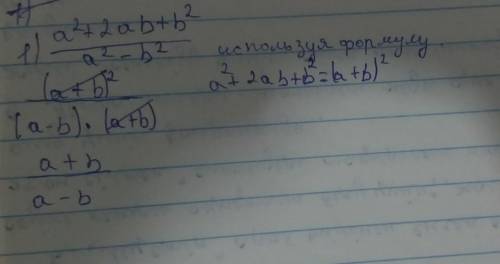 1)
1) a²+2ab+b² / a²-b² используя формулу
(a+b)² / (a-b)·(a+b) a²+2ab+b²=(a+b)²
a+b / a-b